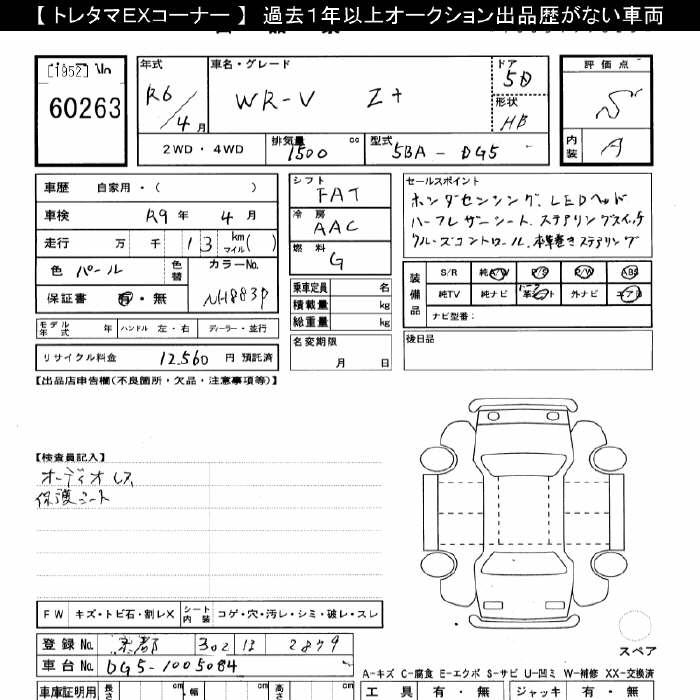 【 トレタマEXコーナー 】 過去1年以上オークション出品歴がない車両
[1952] No
60263
年式
R6/4月
車名・グレード
WR-V Z+
ドア
5D
形状
HB
2WD・4WD
排気量
1500 cc
型式
5BA - DG5
評価点
S
内装
A
車歴 自家用・( )
車検 R9年 4月
走行 万 千 13 km マイル( )
色 パール
色替
カラーNo.
NH883P
保証書 有・無
モデル年式 年 ハンドル 左・右 ディーラー・並行
リサイクル料金 12,560 円 預託済
シフト
FAT
冷房
AAC
燃料
G
乗車定員 名
積載量 kg
総重量 kg
名変期限
月 日
セールスポイント
ホンダセンシング、LEDヘッド
ハーフレザーシート、ステアリングスイッチ
クルーズコントロール、本革巻きステアリング
装備品
S/R 純A/W P/S P/W ABS
純TV 純ナビ 革シート 外ナビ エアB
ナビ型番:
後日品
【出品店申告欄(不良箇所・欠品・注意事項等)】
【検査員記入】
オーディオレス
保護シート
FW キズ・トビ石・割レX シート内装 コゲ・穴・汚レ・シミ・破レ・スレ
登録No. 京都 302 は 2879
車台No. DG5-1005084
スペア
A-キズ C-腐食 E-エクボ S-サビ U-凹ミ W-補修 XX-交換済
車庫証明用 長さ cm 幅 cm 高さ cm
工具 有・無 ジャッキ 有・無